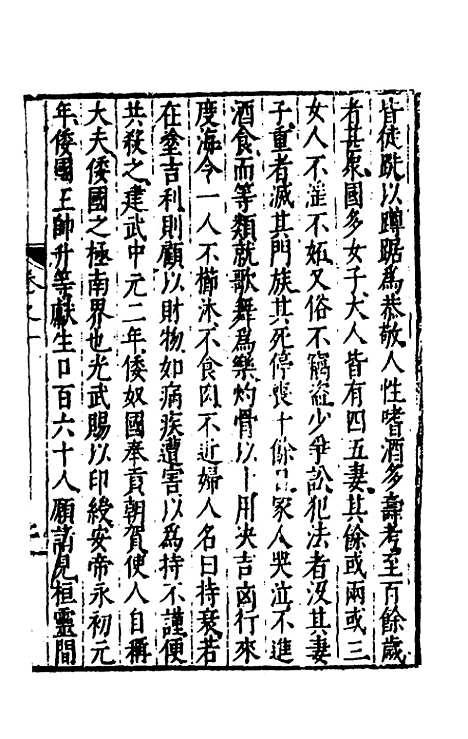 皆徒跣以蹲踞爲恭敬人性嗜酒多壽考至百餘歲
者甚衆國多女子大人皆有四五妻其餘或兩或三
女人不淫不妬又俗不竊盜少爭訟犯法者沒其妻
子重者滅其門族其死停喪十餘日家人哭泣不進
酒食而等類就歌舞爲樂灼骨以卜用決吉凶行來
度海令一人不櫛沐不食肉不近婦人名曰持衰若
在塗吉利則顧以財物如病疾遭害以爲持不謹便
共殺之建武中元二年倭奴國奉貢朝賀使人自稱
大夫倭國之極南界也光武賜以印綬安帝永初元
年倭國王帥升等獻生口百六十人願請見桓靈間